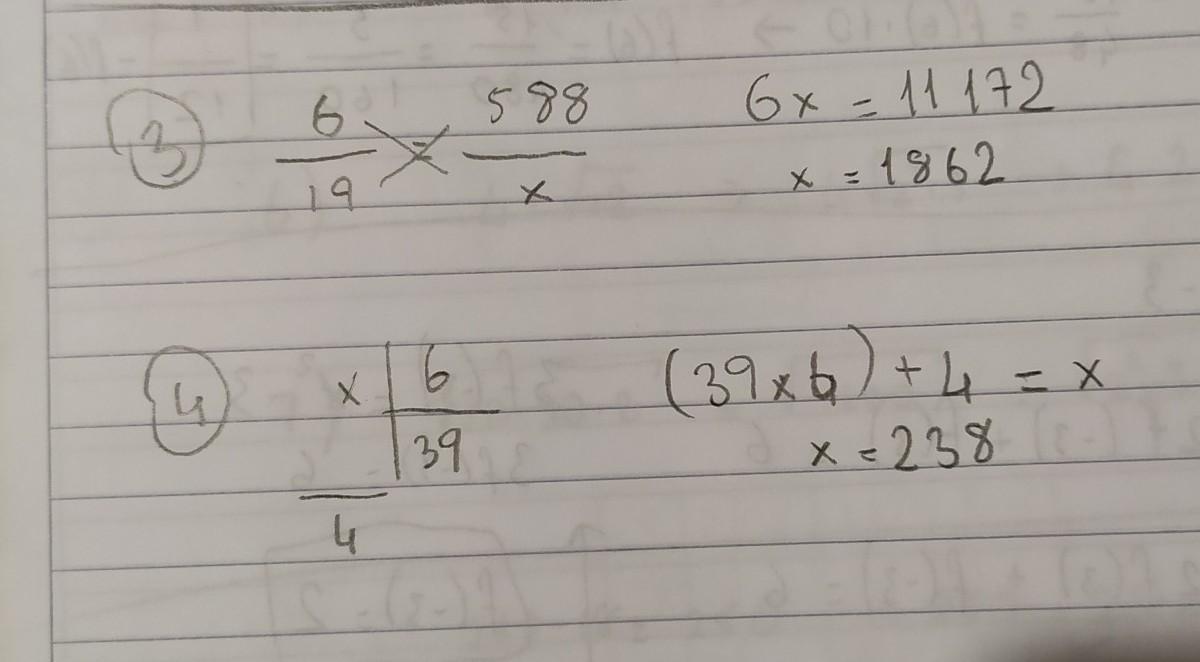 3 6/19 = 588/x 6x = 11172
x = 1862
4 x | 6 (39 x 6) + 4 = x
39 x = 238
4